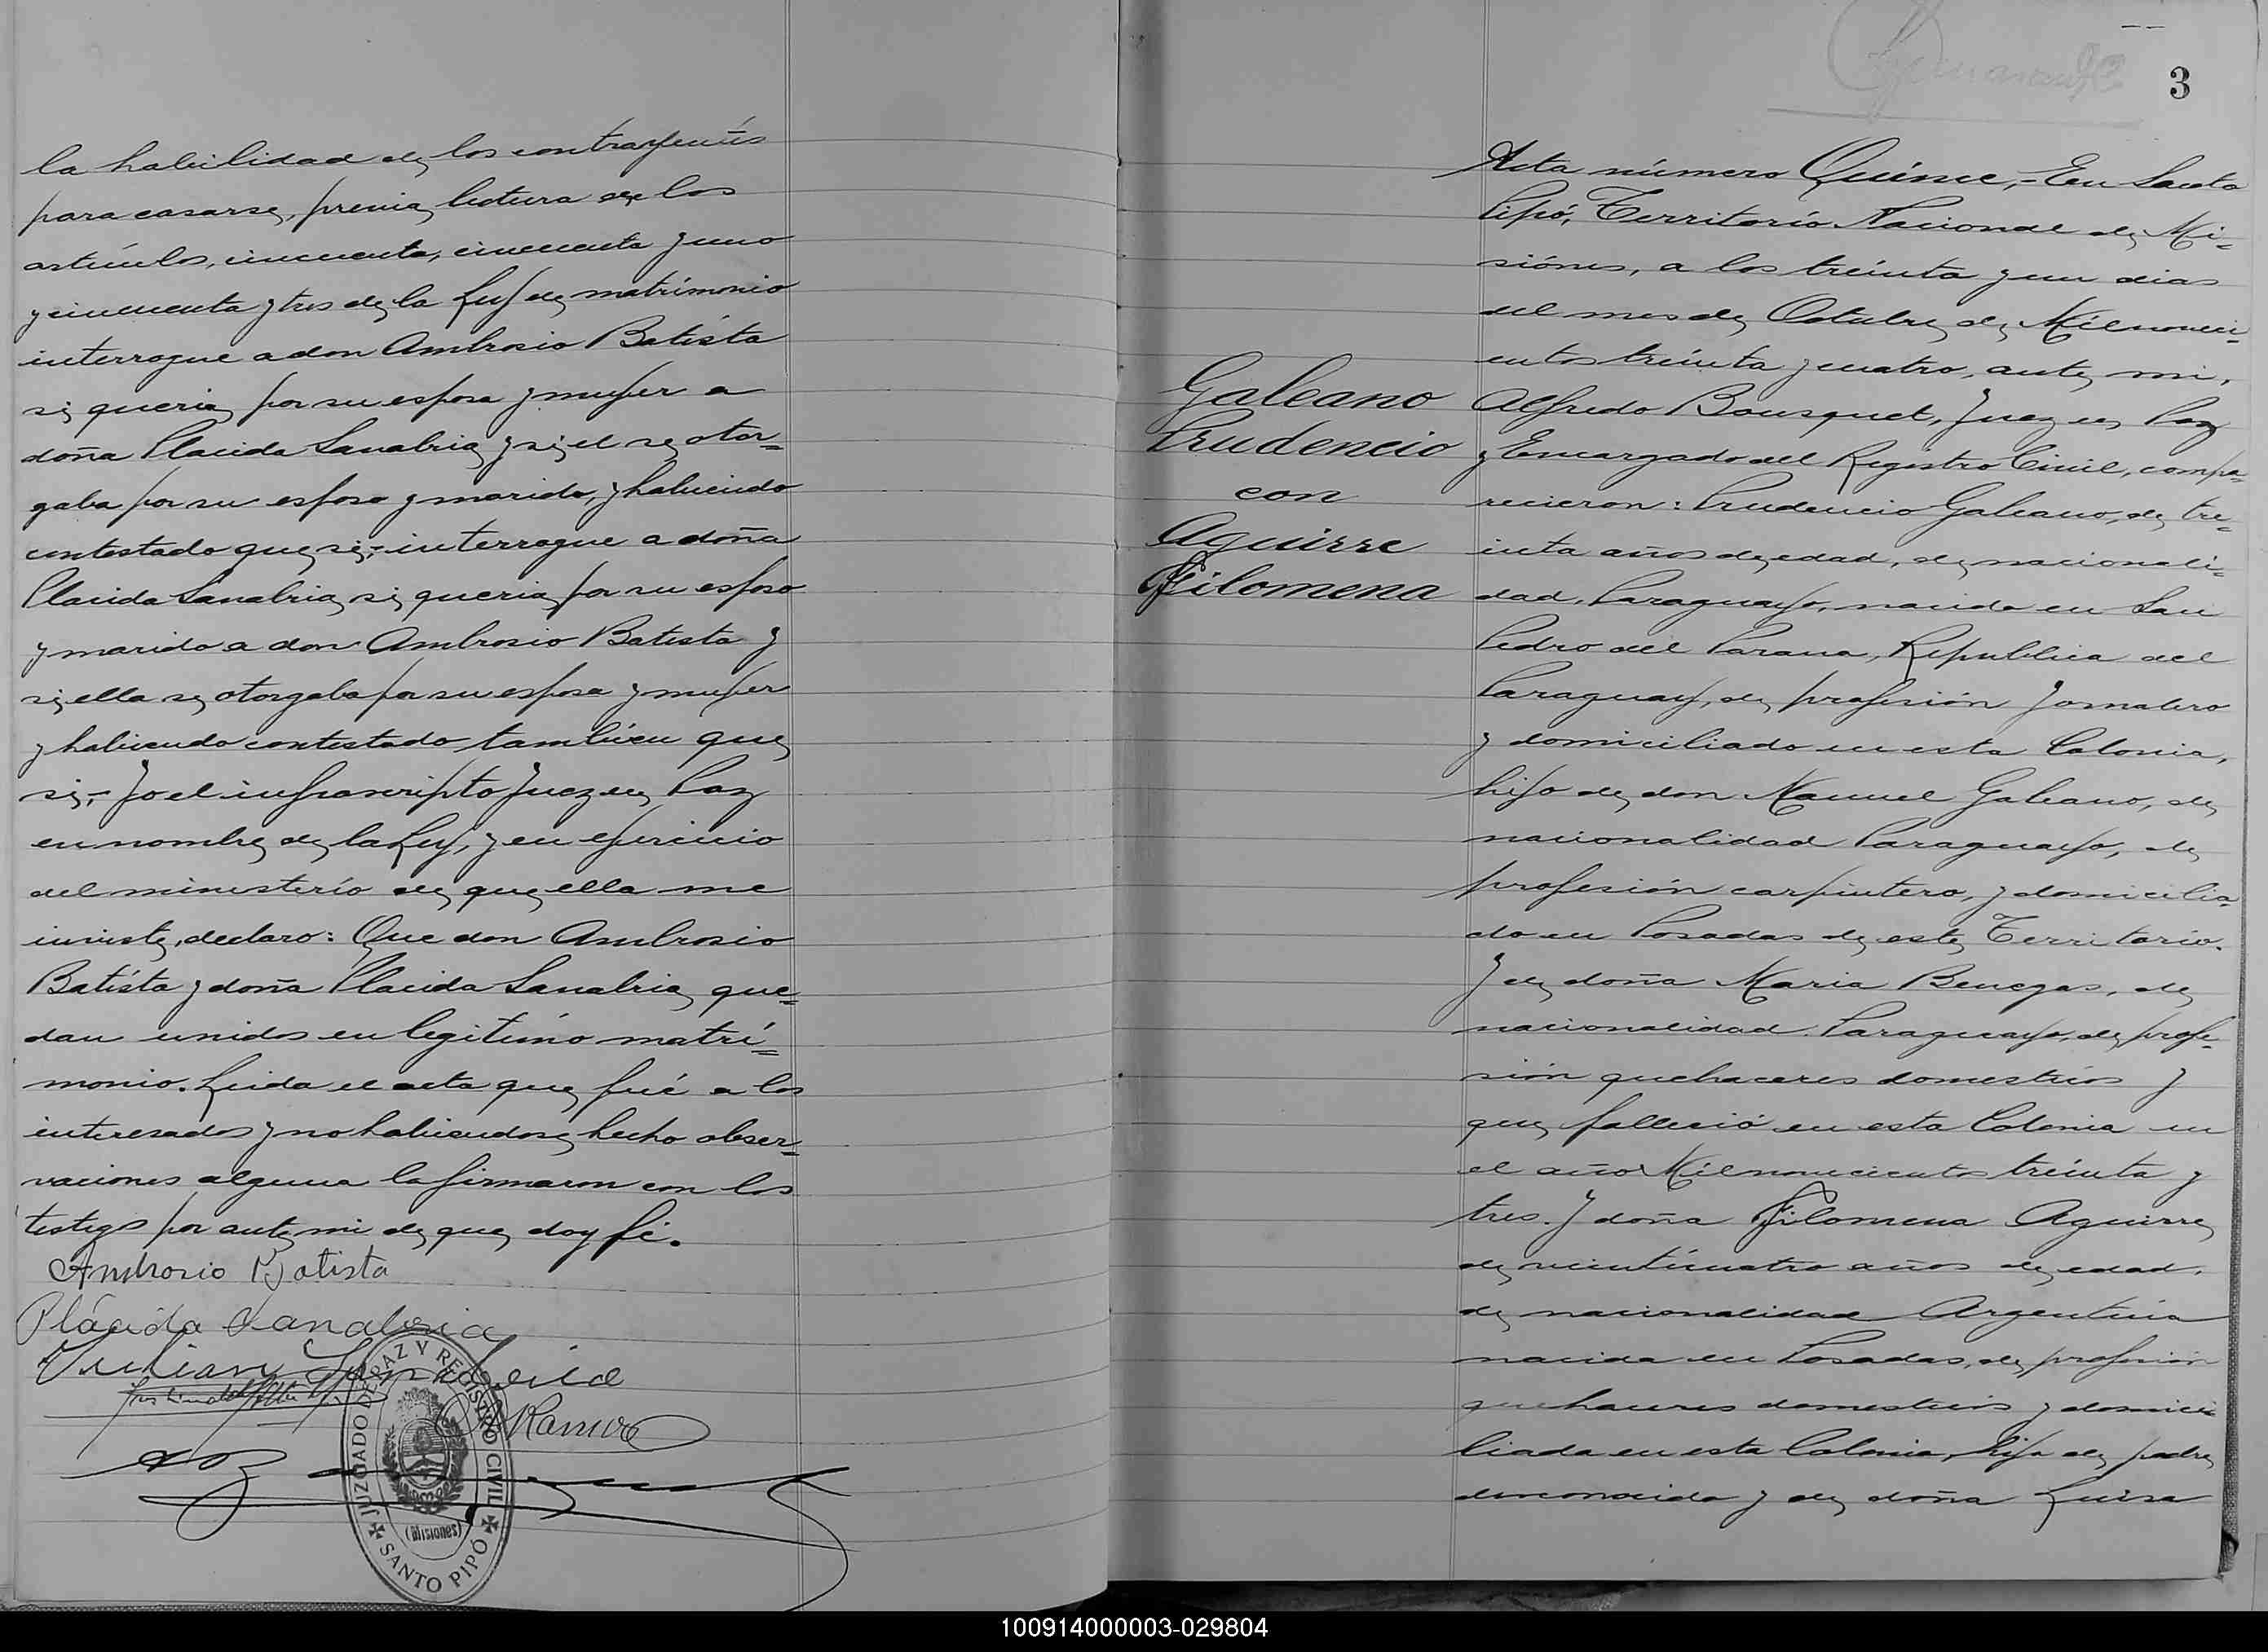 la habilidad de los contrayentes
para casarse, previa lectura de los
artículos, cincuenta, cincuenta y uno
y cincuenta y tres de la Ley de matrimonio
interrogue a don Ambrosio Batista
si queria por su esposa y mujer a
doña Placida Sanabria y si el se otor=
gaba por su esposo y marido, y habiendo
contestado que si;- interrogue a doña
Placida Sanabria si queria por su esposo
y marido a don Ambrosio Batista y
si ella se otorgaba por su esposa y mujer
y habiendo contestado también que
si;- Yo el infrascripto Juez de Paz
en nombre de la Ley, y en ejercicio
del ministerio de que ella me
inviste, declaro: Que don Ambrosio
Batista y doña Placida Sanabria que=
dan unidos en legitimo matri=
monio. Leida el acta que fué a los
interesados y no habiendose hecho obser=
vaciones alguna la firmaron con los
testigos por ante mi de que doy fé.
Ambrosio Batista
Plácida Sanabria
Julian Sanabria
Ramirez
JUZGADO DE PAZ Y REGISTRO CIVIL
(Misiones)
SANTO PIPÓ
3
Acta número Quince,- En Santo
Pipó, Territorio Nacional de Mi=
siónes, a los treinta y un dias
del mes de Octubre de Milnoveci=
entos treinta y cuatro, ante mi,
Alfredo Bousquet, Juez de Paz
y Encargado del Registro Civil, compa=
recieron: Prudencio Galeano, de tre=
inta años de edad, de nacionali=
dad, Paraguayo, nacido en San
Pedro del Parana, Republica del
Paraguay, de profesión Jornalero
y domiciliado en esta Colonia,
hijo de don Manuel Galeano, de
nacionalidad Paraguayo, de
profesión carpintero, y domicilia=
do en Posadas de este Territorio.
Y de doña Maria Benegas, de
nacionalidad Paraguaya, de profe=
sión quehaceres domesticos y
que falleció en esta Colonia en
el año Milnovecientos treinta y
tres. Y doña Filomena Aguirre
de veinticuatro años de edad,
de nacionalidad Argentina
nacida en Posadas, de profesion
quehaceres domesticos y domici
liada en esta Colonia, hija de padre
desconocido y de doña Luisa
Galeano
Prudencio
con
Aguirre
Filomena
100914000003-029804